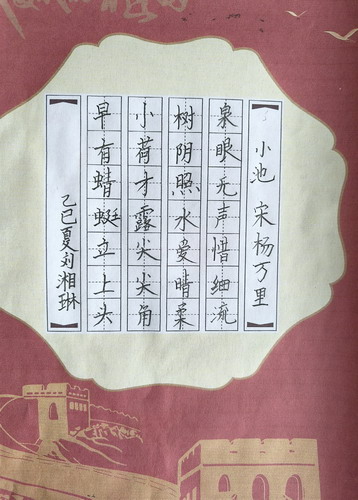 小池 宋 杨万里
泉眼无声惜细流
树阴照水爱晴柔
小荷才露尖尖角
早有蜻蜓立上头
乙巳夏刘湘琳